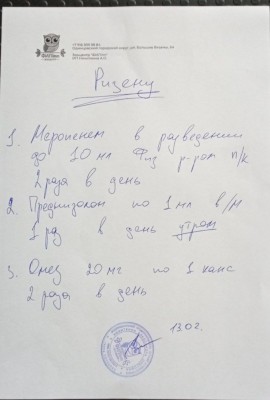 Ризену
1. Меропенем в разведении
до 10 мл Физ р-ром п/к
2 раза в день
2. Преднизолон по 1 мл в/м
1 раз в день утром
3. Омез 20 мг по 1 капс
2 раза в день
13.02.